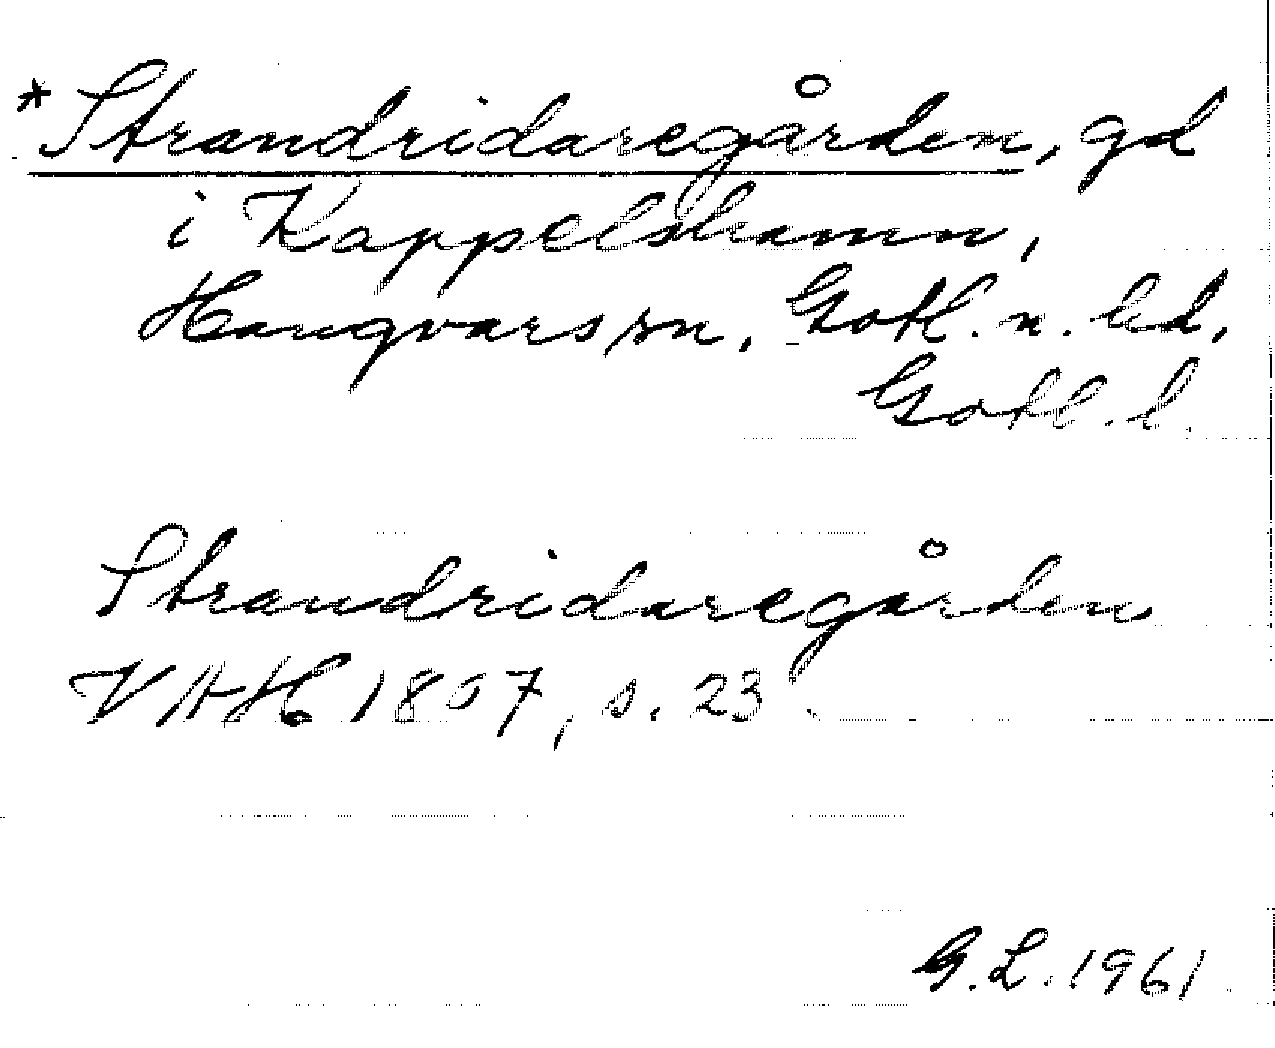 *Strandridaregården, gd
i Kappelshamn,
Hangvars sn, Gotl. n. hd,
Gotl. l.
Strandridaregården
VAH 1807, s. 23.
G.L. 1961